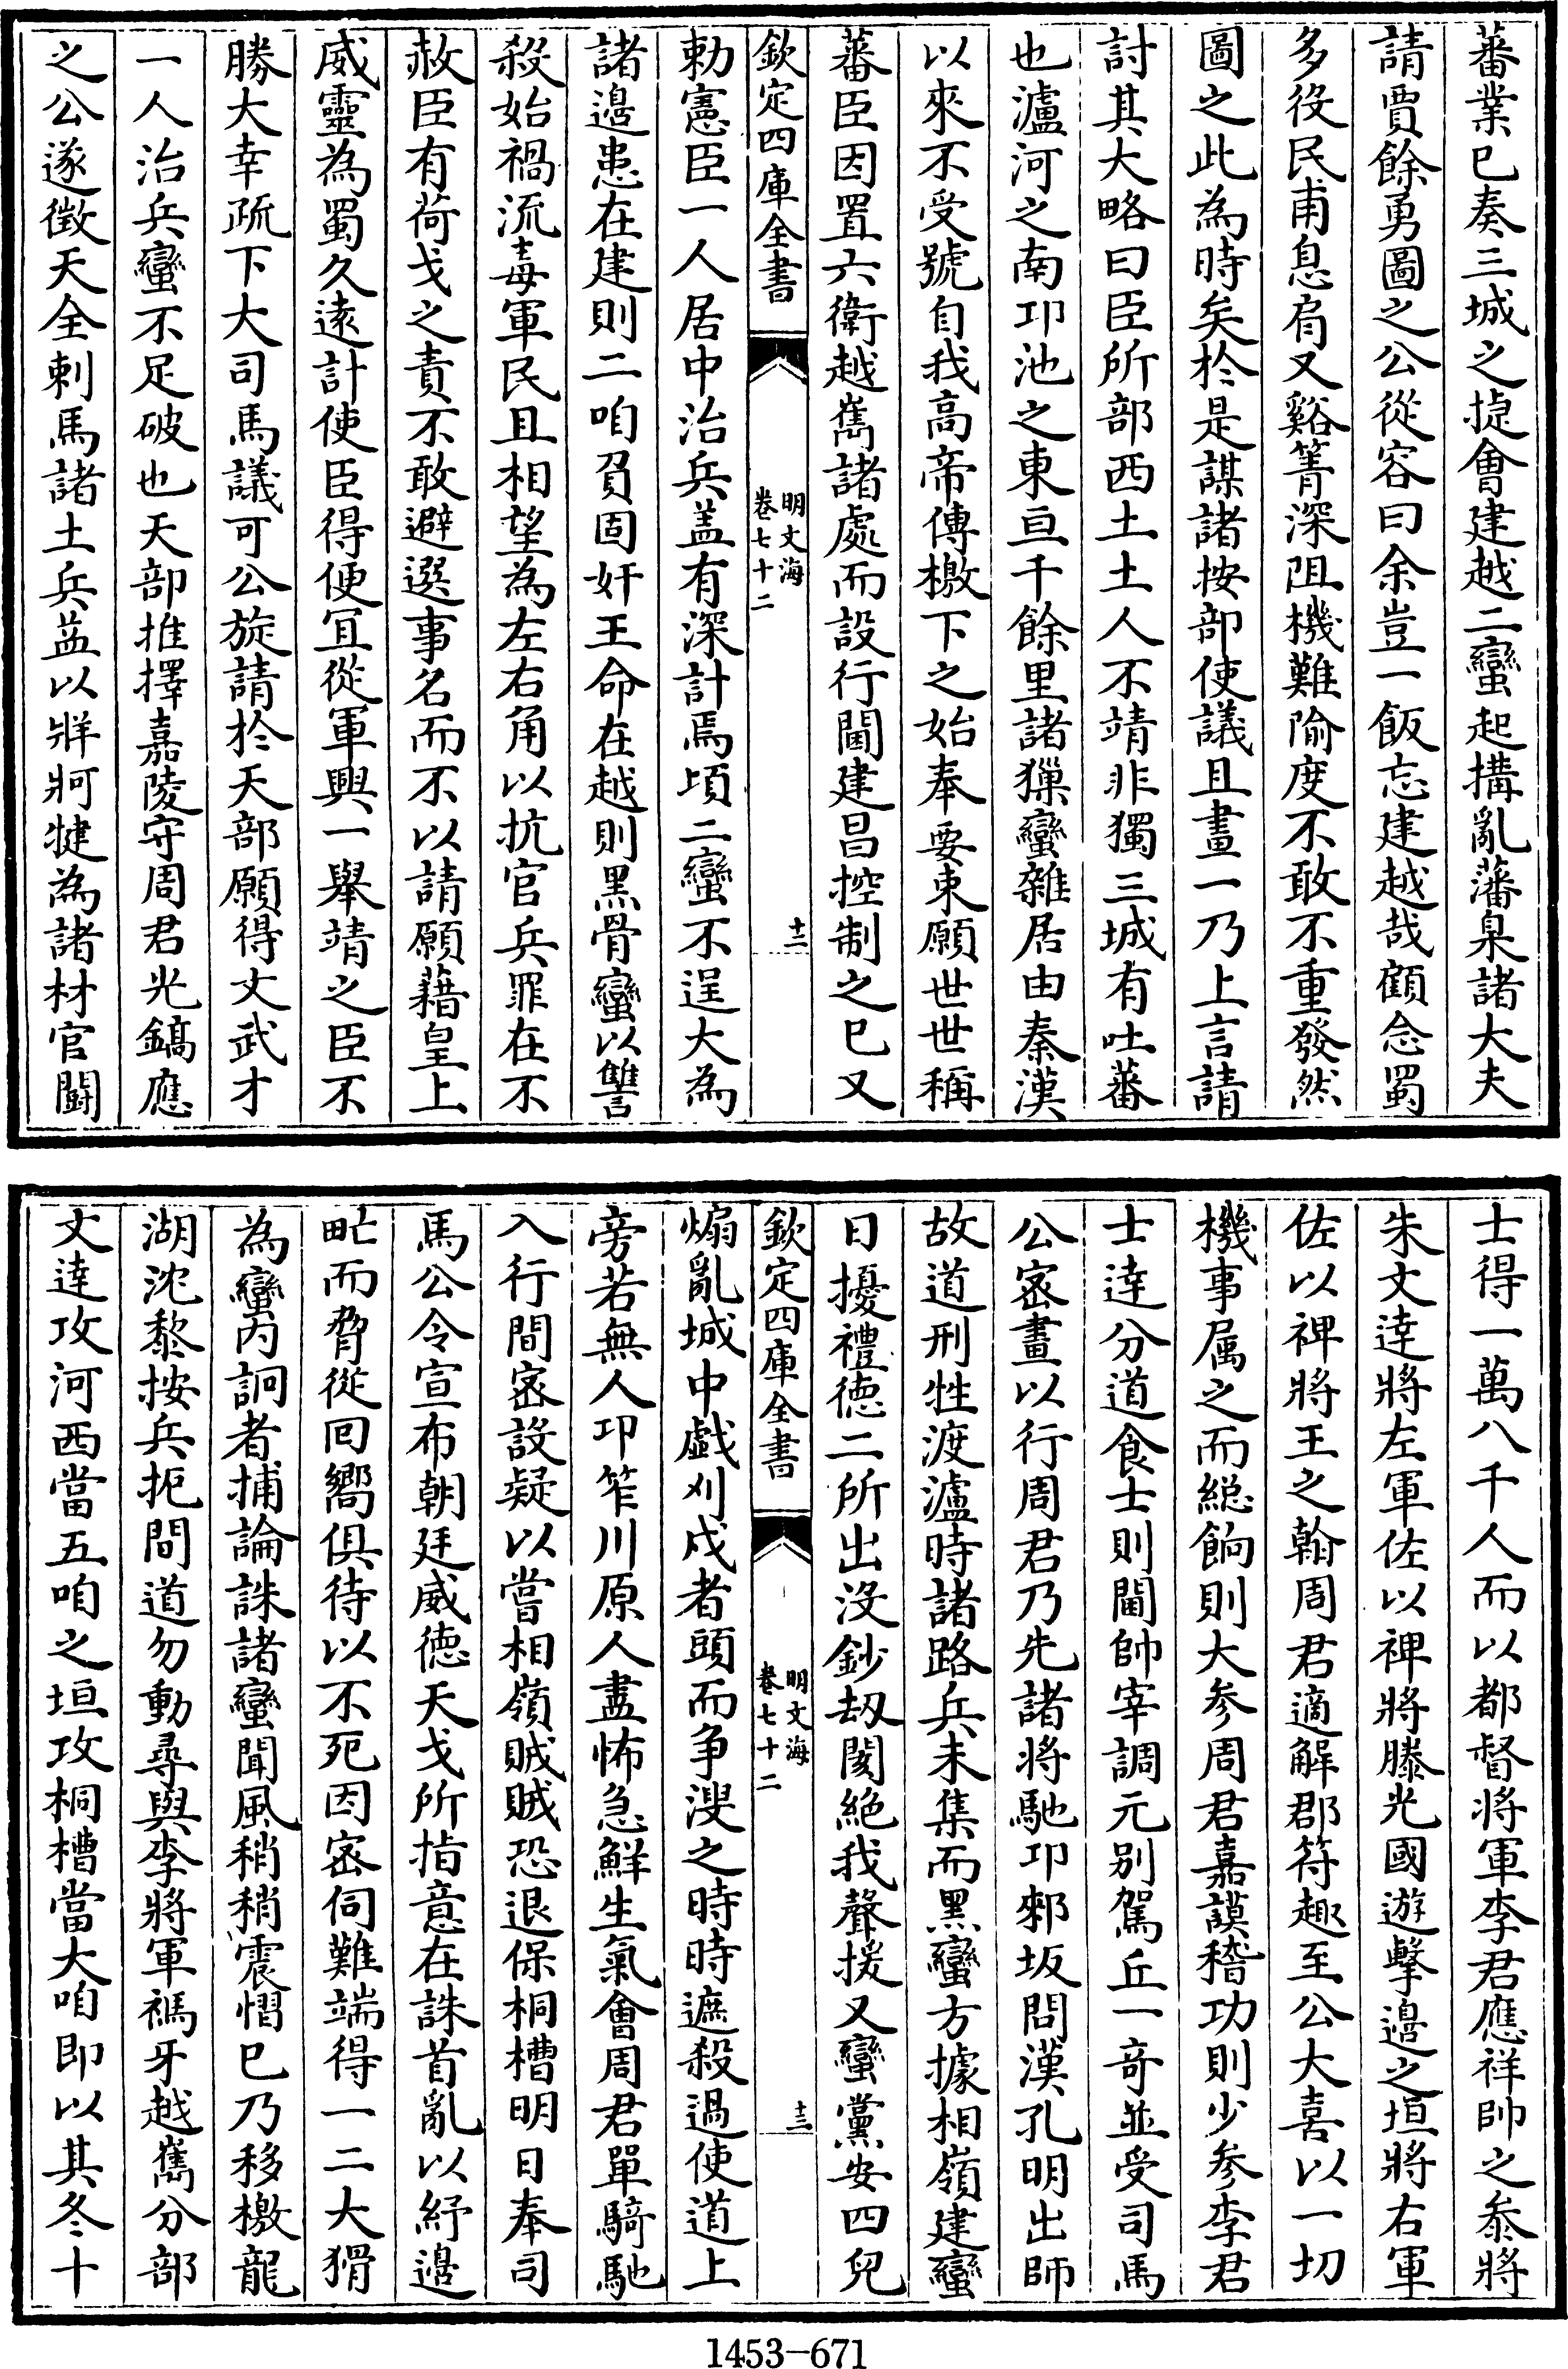 蕃業已奏三城之捷會建越二蠻起搆亂藩臬諸大夫
請賈餘勇圖之公從容曰余豈一飯忘建越哉顧念蜀
多役民甫息肩又谿箐深阻機難隃度不敢不重發然
圖之此為時矣於是謀諸按部使議且畫一乃上言請
討其大略曰臣所部西土土人不靖非獨三城有吐蕃
也瀘河之南卭池之東亘千餘里諸猓蠻雜居由秦漢
以來不受號自我高帝傳檄下之始奉要束願世世稱
蕃臣因置六衛越嶲諸處而設行閫建昌控制之已又
欽定四庫全書
明文海
卷七十二
十二
勅憲臣一人居中治兵盖有深計焉頃二蠻不逞大為
諸邊患在建則二咱負固奸王命在越則黑骨蠻以讐
殺始禍流毒軍民且相望為左右角以抗官兵罪在不
赦臣有荷戈之責不敢避選事名而不以請願藉皇上
威靈為蜀久遠計使臣得便宜從軍興一舉靖之臣不
勝大幸疏下大司馬議可公旋請於天部願得文武才
一人治兵蠻不足破也天部推擇嘉陵守周君光鎬應
之公遂徵天全剌馬諸土兵益以牂牁犍為諸材官鬬
士得一萬八千人而以都督將軍李君應祥帥之叅將
朱文逹將左軍佐以裨將滕光國遊擊邊之垣將右軍
佐以裨將王之翰周君適解郡符趣至公大喜以一切
機事属之而緫餉則大叅周君嘉謨稽功則少叅李君
士逹分道食士則閫帥宰調元别駕丘一竒並受司馬
公宻畫以行周君乃先諸將馳卭郲坂問漢孔明出師
故道刑牲渡瀘時諸路兵未集而黑蠻方據相嶺建蠻
日擾禮徳二所出沒鈔刼閡絶我聲援又蠻黨安四兒
欽定四庫全書
明文海
卷七十二
十三
煽亂城中戯刈戍者頭而争溲之時時遮殺過使道上
旁若無人卭笮川原人盡怖急鮮生氣會周君單騎馳
入行間宻設疑以嘗相嶺賊賊恐退保桐槽明日奉司
馬公令宣布朝廷威徳天戈所指意在誅首亂以紓邊
甿而脅從囘嚮俱待以不死因宻伺難端得一二大猾
為蠻内詗者捕論誅諸蠻聞風稍稍震慴已乃移檄龍
湖沈黎按兵扼間道勿動尋與李將軍禡牙越嶲分部
文逹攻河西當五咱之垣攻桐槽當大咱即以其冬十
1453—671